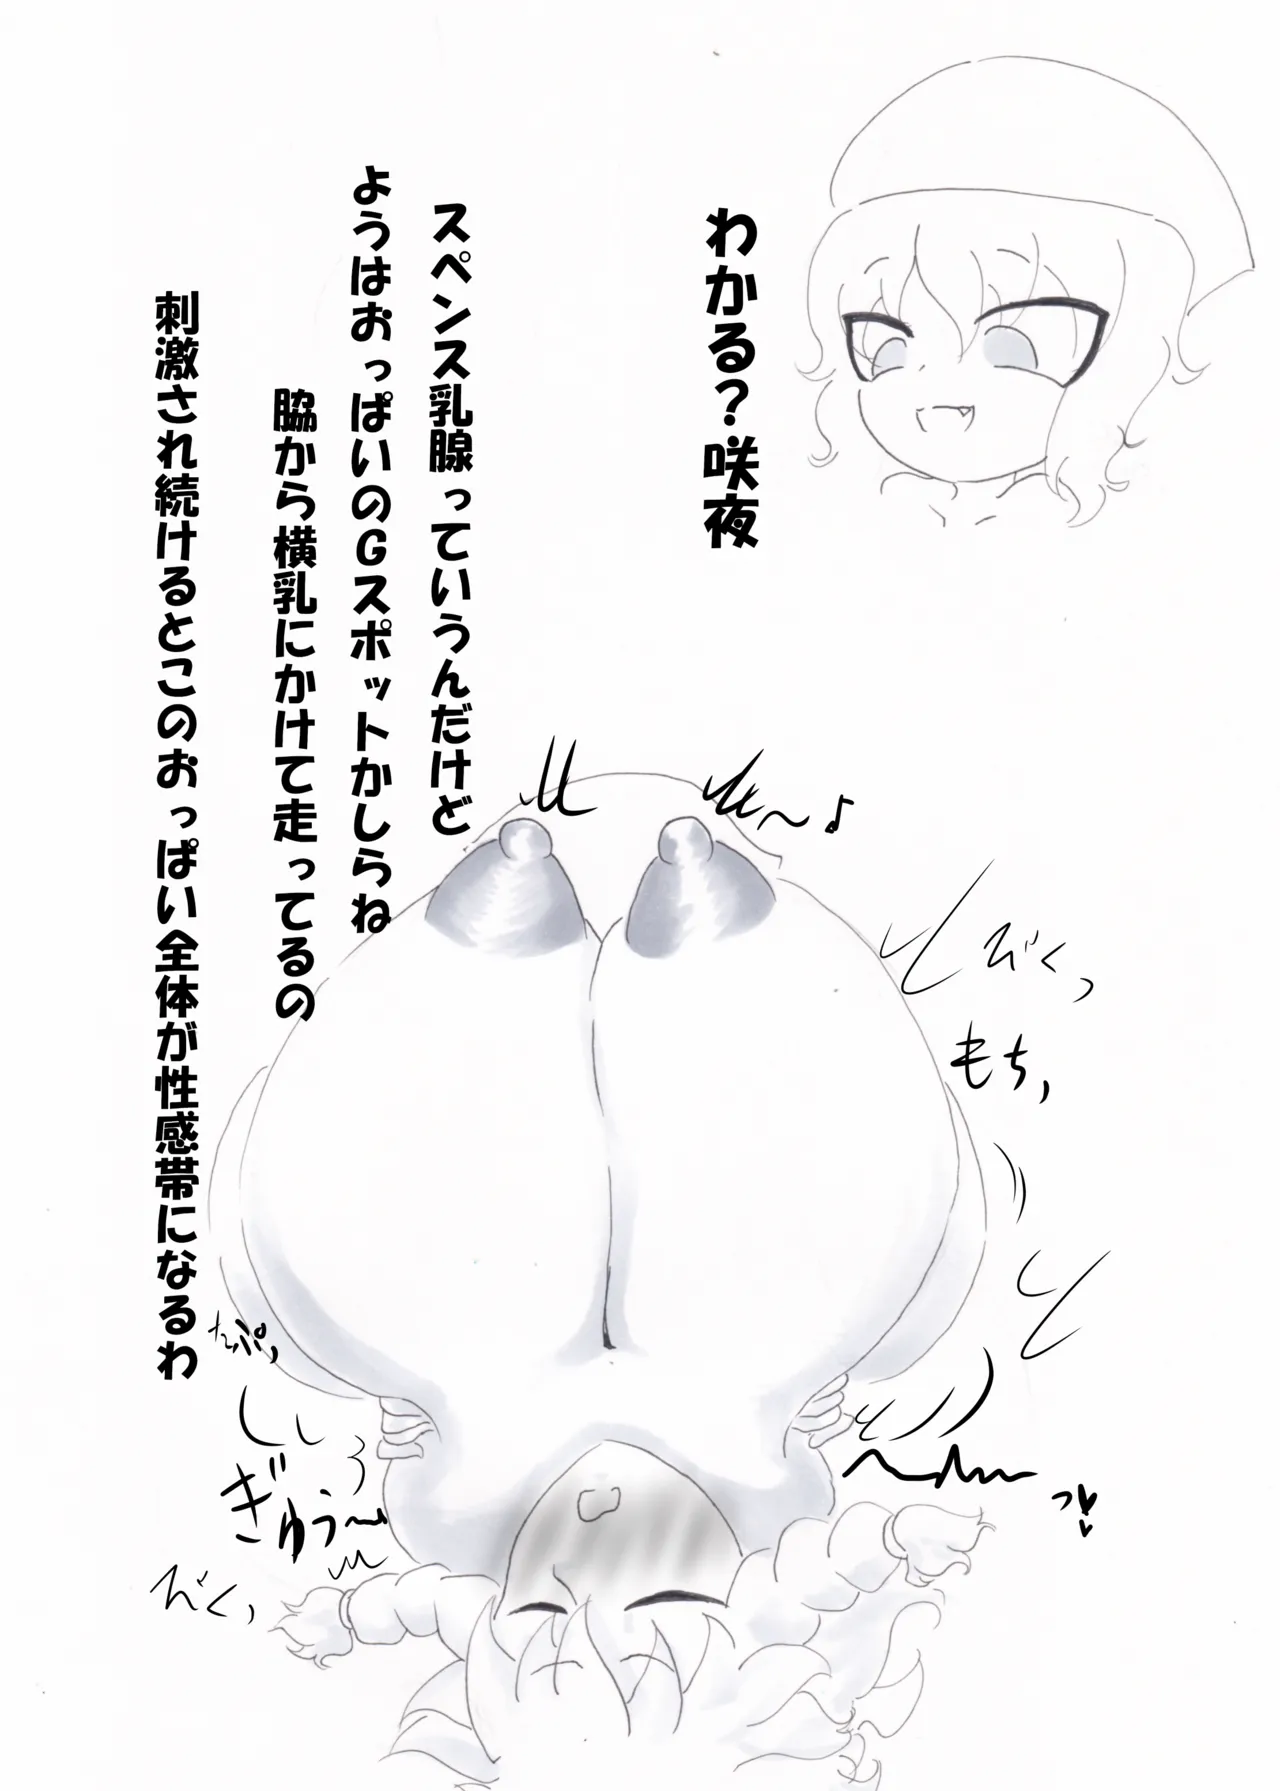 わかる？咲夜
スペンス乳腺っていうんだけど
ようはおっぱいのGスポットかしらね
脇から横乳にかけて走ってるの
刺激され続けるとこのおっぱい全体が性感帯になるわ
びくっ
もち、
たぷっ
ぎゅう〜
びくっ